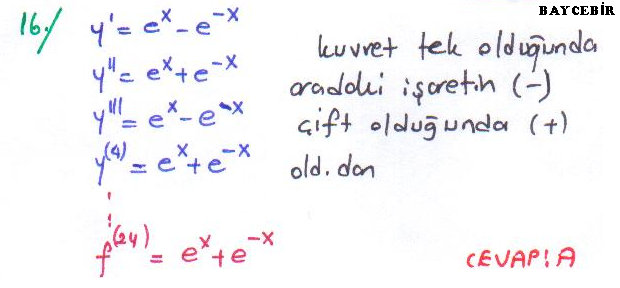 BAYCEBİR
16./ y' = e^x - e^-x
y'' = e^x + e^-x
y''' = e^x - e^-x
y^(4) = e^x + e^-x
kuvvet tek olduğunda
aradaki işaretin (-)
çift olduğunda (+)
old. dan
f^(24) = e^x + e^-x
CEVAP: A